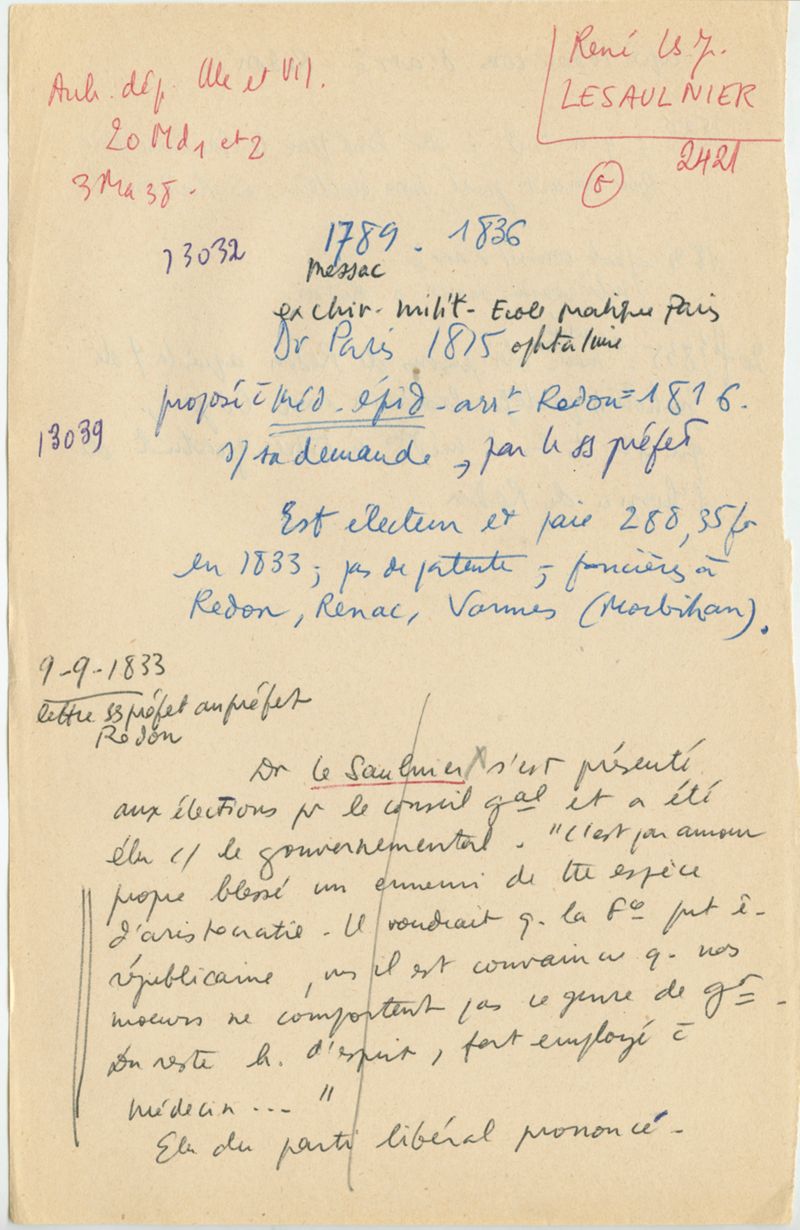 Arch. dép. Ille et Vil.
20 Md1 et 2
3 Ma 38.
René
LESAULNIER
2421
13032
1789 - 1836
Messac
ex chir. milit - Ecole pratique Paris
Dr Paris 1815 ophtalmie
proposé c̄ méd. épid - arrt Redon = 1816.
13039
s/ sa demande, par le ss préfet
Est électeur et paie 288,35 fr
en 1833 ; pas de patente, - foncières à
Redon, Renac, Vannes (Morbihan).
9-9-1833
lettre ss préfet au préfet
Redon
Dr Le Saulnier s'est présenté
aux élections pr le conseil gal et a été
élu c/ le gouvernemental. "C'est par amour
propre blessé un ennemi de tte espèce
d'aristocratie - Il voudrait q. la Fce put ê.
républicaine, ms il est convaincu q. nos
moeurs ne comportent pas ce genre de gt -
Du reste h. d'esprit, fort employé c̄
médecin ... "
Elu du parti libéral prononcé -